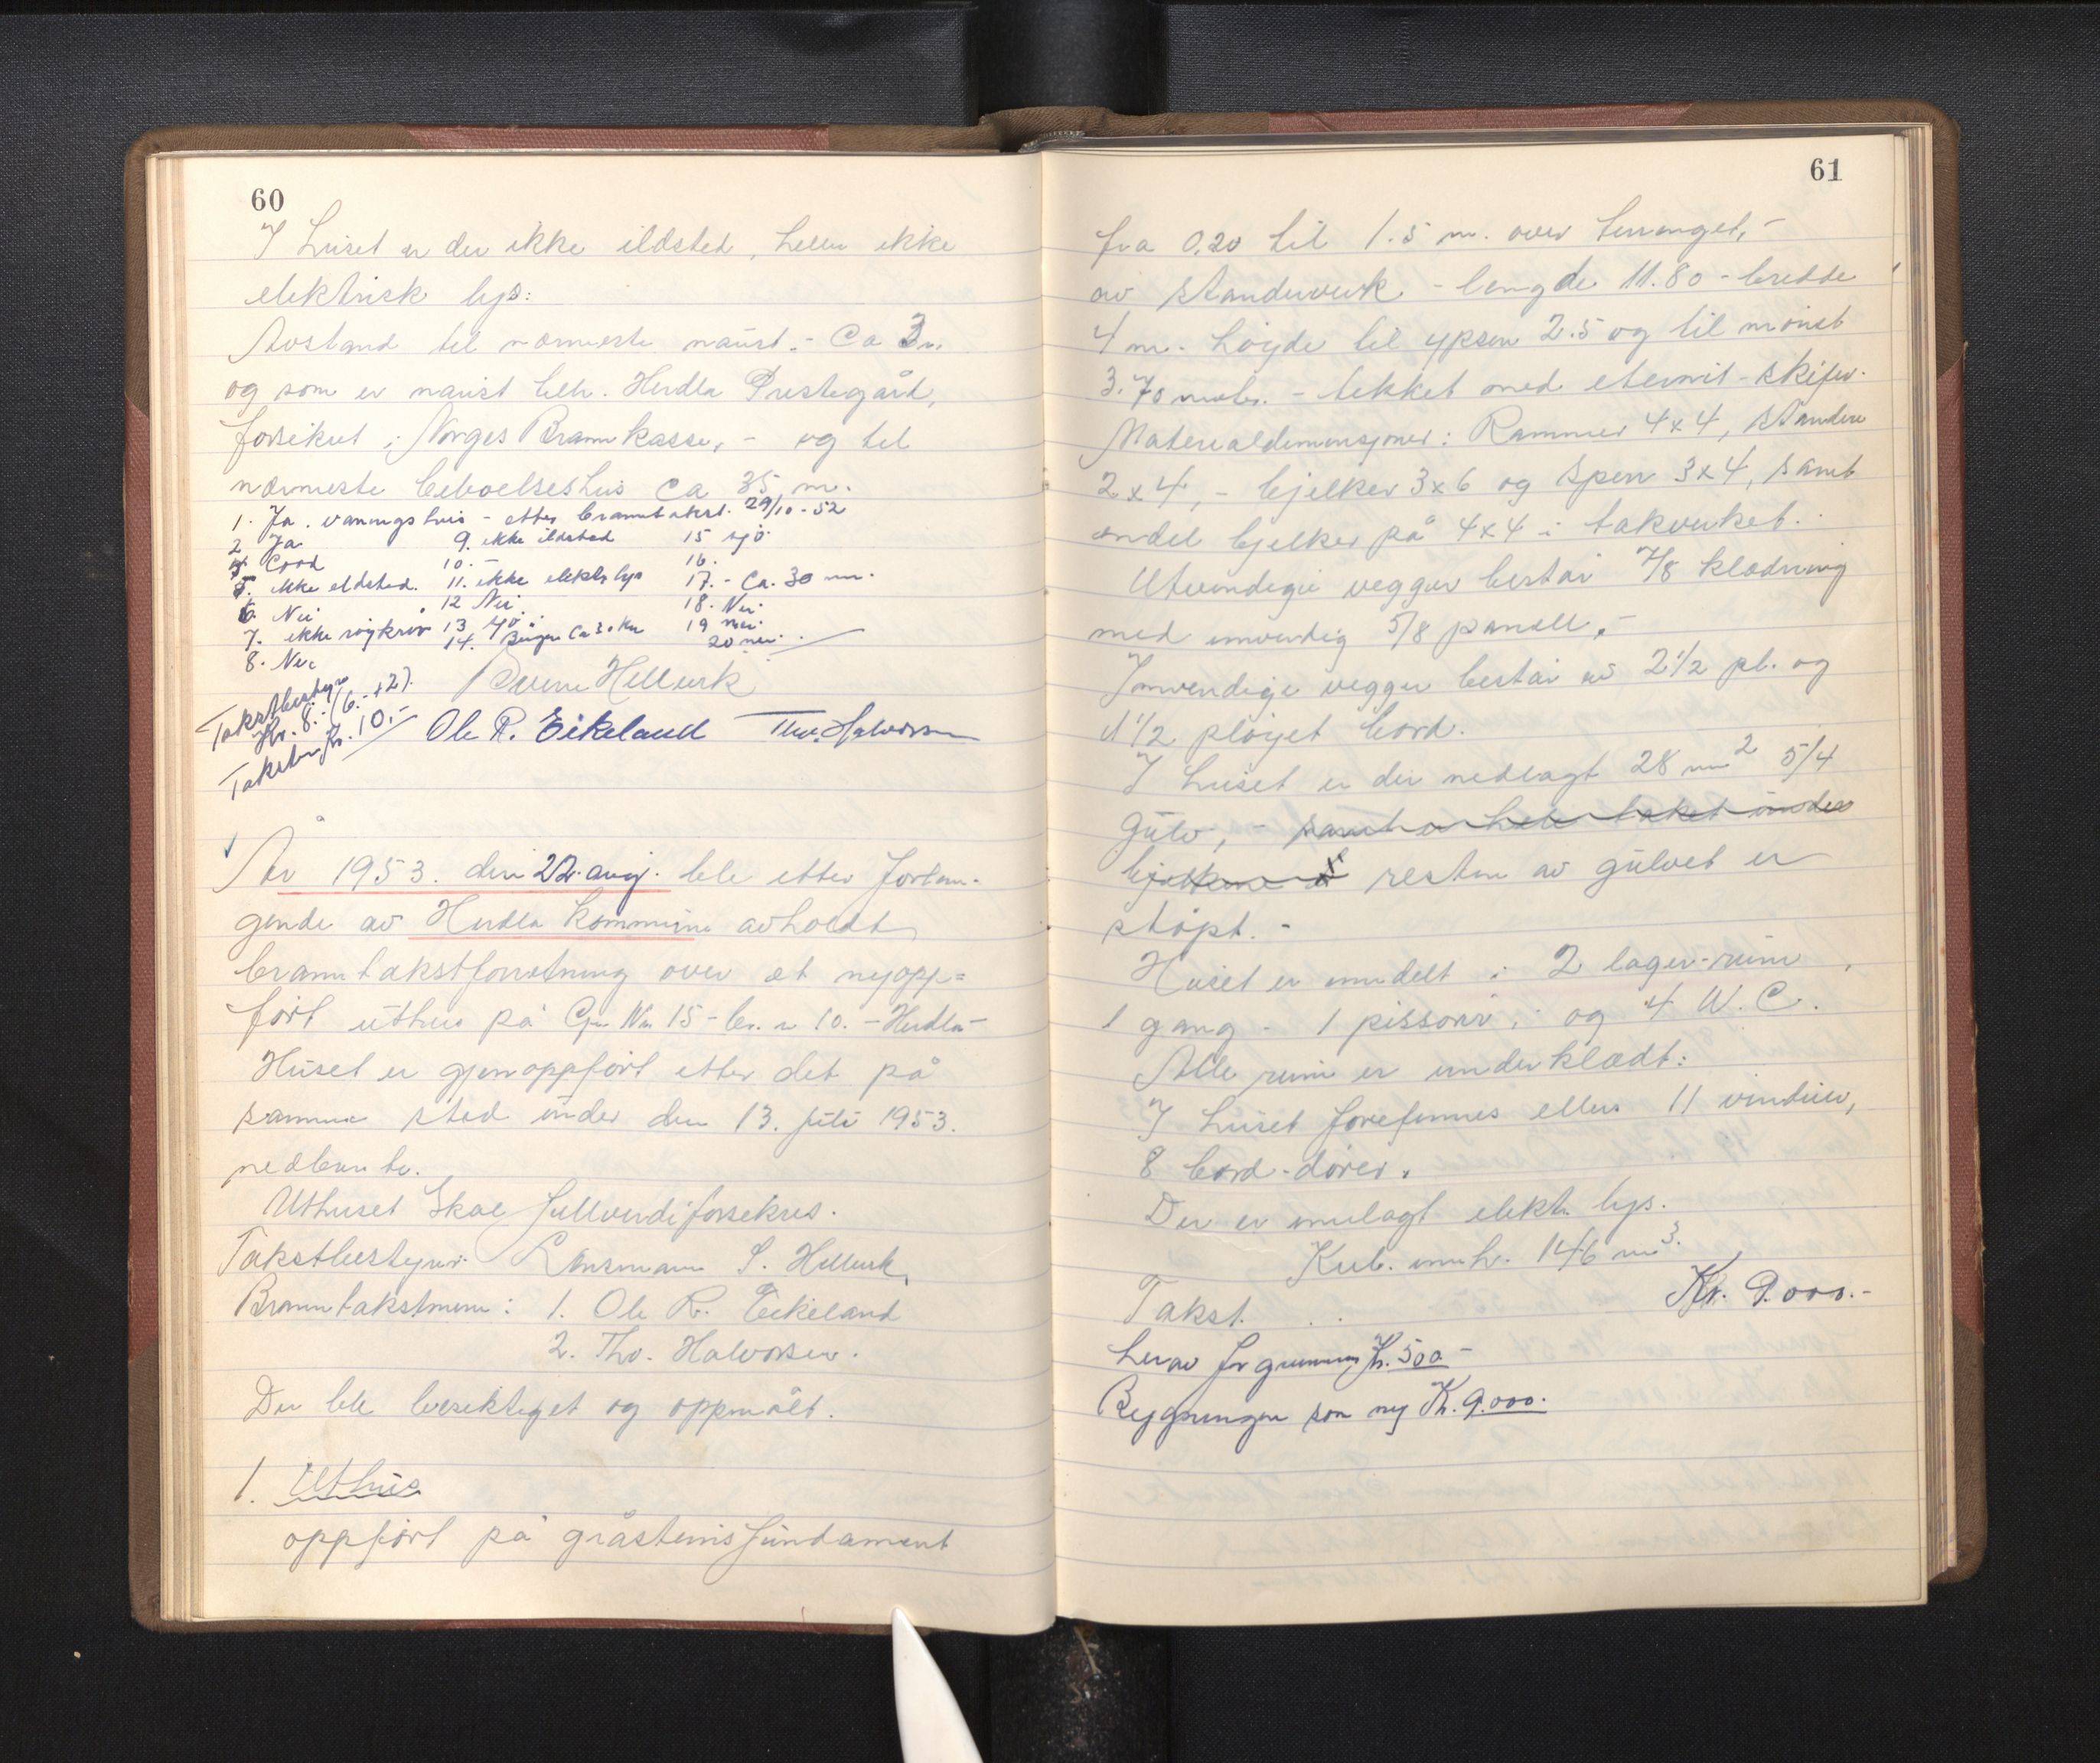 60
I huset er der ikke ildsted, heller ikke
elektrisk lys:
Avstand til nærmeste naust.- Ca 3 m.
og som er naust tilh. Herdla Prestegård,
forsikret i Norges Brannkasse, - og til
nærmeste beboelseshus ca 35 m.
1. Ja. vaningshus - etter branntakst. 29/10-52
2 Ja
9. ikke ildsted
15 sjø
Good
10. -
16.
5. ikke ildsted.
11. ikke elektr lys
17. - Ca. 30 m.
6. Nei
12 Nei
18. Nei
7. ikke røykrør
13
19 nei.
8. Nei
14. Bergen Ca 30 km
20 nei.
Takstbestyr
Kr. 8.- (6.-+2).
Kr. 10.-
Sverre Hellevik
Ole R. Eikeland Thv. Halvorsen
År 1953. den 22. aug. ble etter forlan-
gende av Herdla kommune avholdt
branntakstforretning over et nyopp=
ført uthus på Gr. Nr. 15 - br. nr 10. - Herdla -
Huset er gjenoppført etter det på
samme sted under den 13. juli 1953.
nedbrente.
Uthuset skal fullverdiforsikres.
Takstbestyrer: Lensmann S. Hellevik,
Branntakstmenn: 1. Ole R. Eikeland
2. Thv. Halvorsen.
Der ble besiktiget og oppmålt.
1. Uthus
oppført på gråsteinsfundament
61
fra 0.20 til 1.5 m. over terrenget, -
av standerverk - lengde 11.80 - bredde
4 m. høyde til gesm 2.5 og til mønet
3.70 meter. - tekket med eternit - skifer.
Materialdimensjoner: Rammer 4x4, standere
2x4, - bjelker 3x6 og sperr 3x4, samt
endel bjelker på 4x4 i takverket.
Utvendige vegger består 7/8 klædning
med innvendig 5/8 panell. -
Innvendige vegger består av 2 1/2 pl. og
1 1/2 pløyet bord.
I huset er der nedlagt 28 m2 5/4
Gulv, - samt hele taket under
bjelkene resten av gulvet er
støpt. -
Huset er inndelt i 2 lager-rum,
1 gang - 1 pissoar, og 4 W. C.
Alle rum er underklædt:
I huset forefinnes ellers 11 vinduer,
8 bord-dører.
Der er innlagt elektr. lys.
Kub. innh. 146 m3.
Takst . . Kr. 9.000.-
herav for grunnmur Kr. 500 -
Bygningen som ny Kr. 9.000.